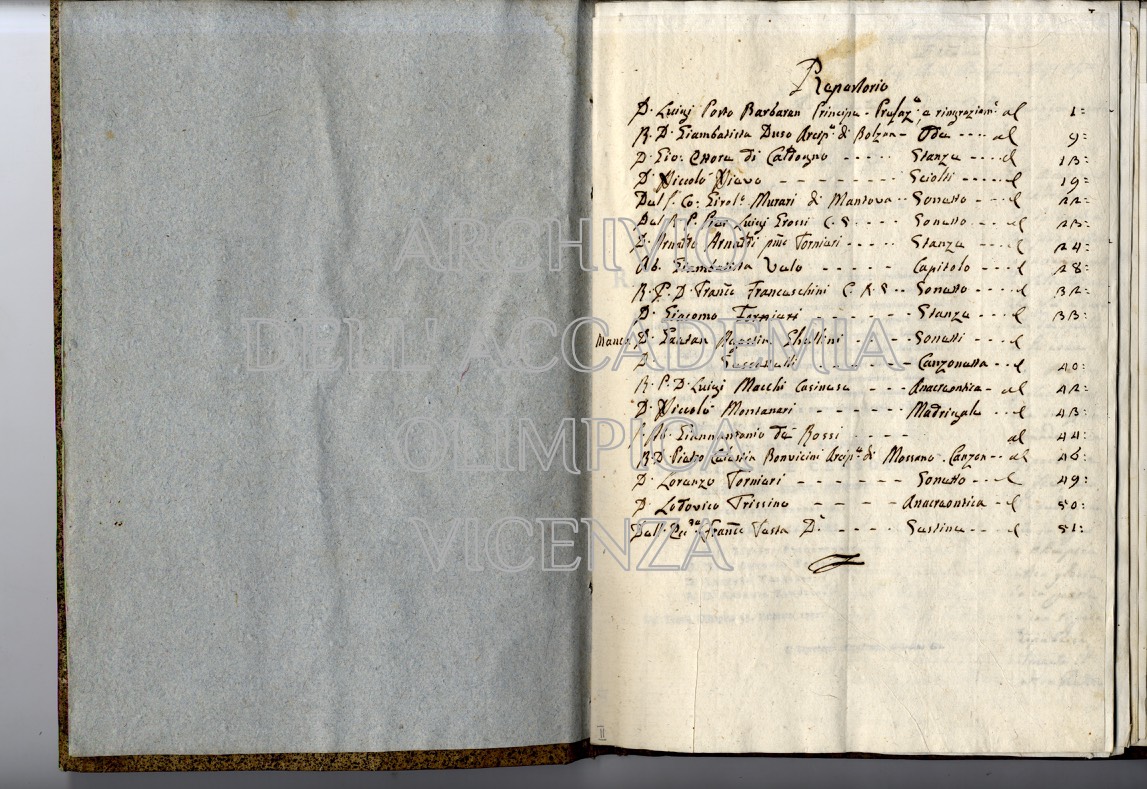 Repertorio
D. Luigj Porto Barbaran Principe - Prefaz.e e ringraziam.to al 1:
R. D. Giambatista Duso Arcip.e di Bolzan - Oda - - - - al 9:
D. Gio: Ettore di Caldogno - - - - - Stanze - - - - al 13:
D. Niccolò Nievo - - - - - - - - Sciolti - - - - - al 19:
Dal S. Co: Girol.o Murari di Mantova - - Sonetto - - - - al 22:
Dal R. P. Pier Luigj Grossi C. S. - - - Sonetto - - - - al 23:
D. Arnaldi Tornieri - - - - - Stanze - - - - al 24:
Ab. Giambatista Velo - - - - - Capitolo - - - - al 28:
R. P. D. Franc.o Franceschini C. R. S. - - Sonetto - - - - al 32:
D. Giacomo Tornieri - - - - - - - Stanze - - - - al 33:
Manca D. Gaetan - - - - - Sonetti - - - - al
D. - - - - - - Canzonetta - - - al 40:
R. P. D. Luigi Macchi Casinese - - - Anacreontica - al 42:
D. Niccolò Montanari - - - - - - Madrigale - - - al 43:
Ab. Giannantonio De Rossi - - - - al 44:
R. D. Pietro Bonvicini Arcip.e di Mossano. Canzon - - al 46:
D. Lorenzo Tornieri - - - - - - Sonetto - - - - al 49:
D. Lodovico Trissino - - - - - Anacreontica - al 50:
Franc.o Testa D.r - - - - Sestine - - - al 51:
ARCHIVIO
DELL'ACCADEMIA
OLIMPICA
VICENZA
II